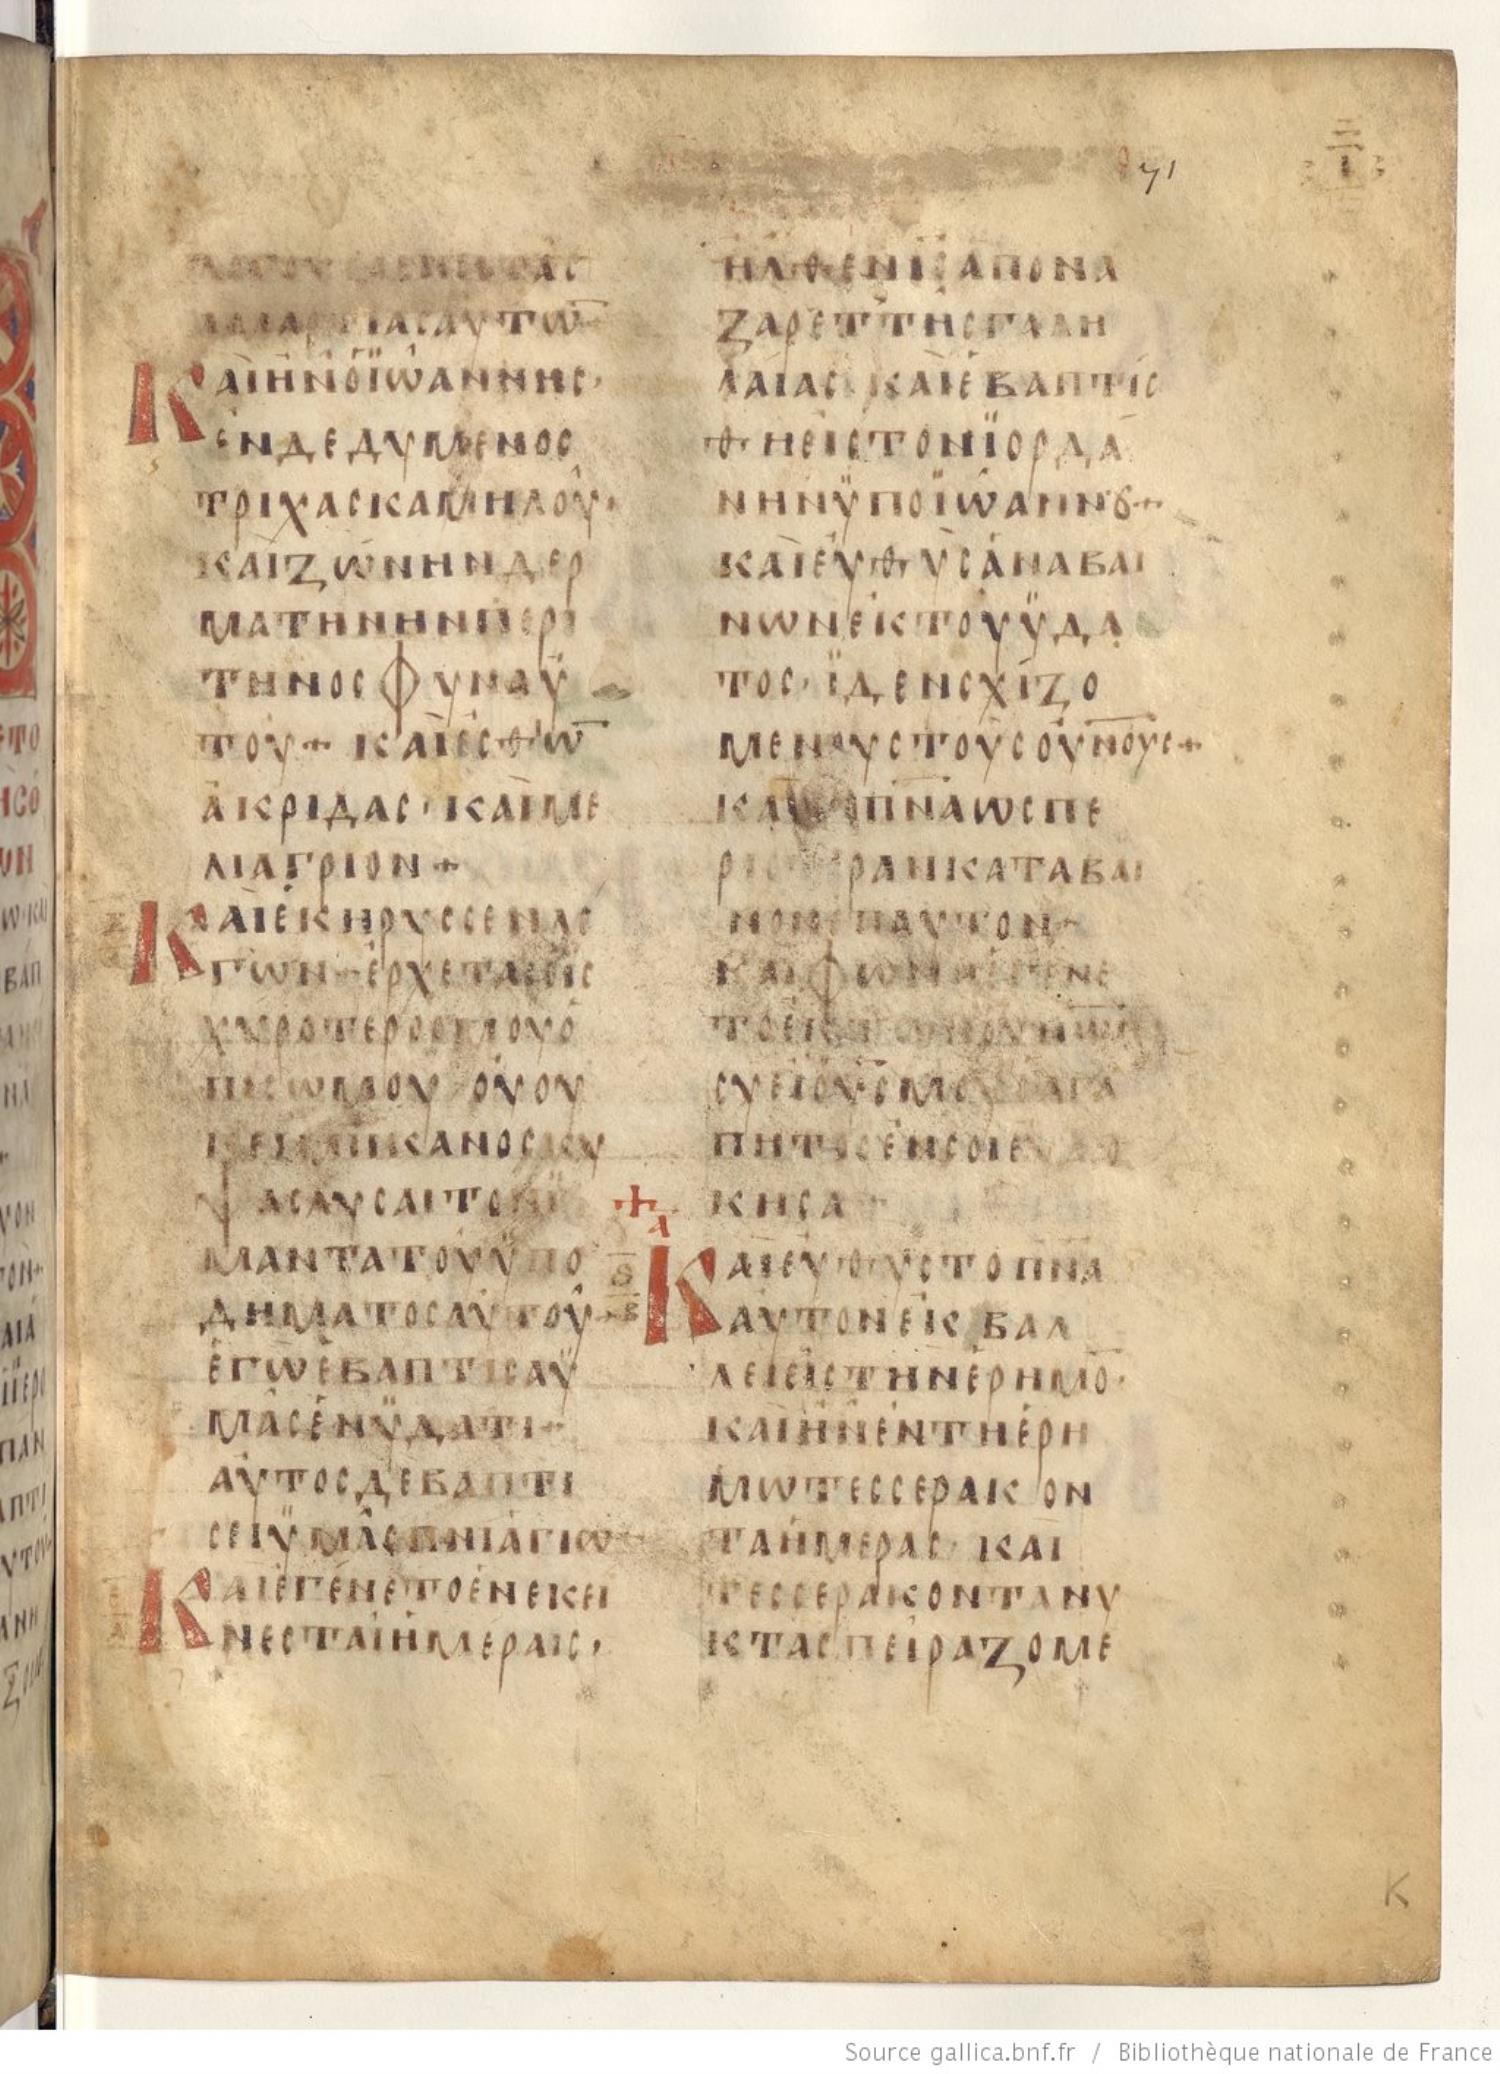 71
ΑΜΑΡΤΙΑΣ ΑΥΤΩ̅
ΚΑΙ ΗΝ Ο ΪΩΑΝΝΗΣ·
ΕΝΔΕΔΥΜΕΝΟΣ
ΤΡΙΧΑΣ ΚΑΜΗΛΟΥ·
ΚΑΙ ΖΩΝΗΝ ΔΕΡ
ΜΑΤΗΝΗΝ ΠΕΡΙ
ΤΗΝ ΟΣΦΥΝ ΑΥ
ΤΟΥ + ΚΑΙ ΕΣΘΙΩ̅
ΑΚΡΙΔΑΣ· ΚΑΙ ΜΕ
ΛΙ ΑΓΡΙΟΝ +
ΚΑΙ ΕΚΗΡΥΣΣΕΝ ΛΕ
ΓΩΝ + ΕΡΧΕΤΑΙ Ο ΙΣ
ΧΥΡΟΤΕΡΟΣ ΜΟΥ Ο
ΠΙΣΩ ΜΟΥ ΟΥ ΟΥ
Κ ΕΙΜΙ ΙΚΑΝΟΣ ΚΥ
ΨΑΣ ΛΥΣΑΙ ΤΟΝ Ϊ
ΜΑΝΤΑ ΤΟΥ ΫΠΟ
ΔΗΜΑΤΟΣ ΑΥΤΟΥ +
ΕΓΩ ΕΒΑΠΤΙΣΑ Ϋ
ΜΑΣ ΕΝ ΫΔΑΤΙ +
ΑΥΤΟΣ ΔΕ ΒΑΠΤΙ
ΣΕΙ ΫΜΑΣ ΠΝΙ ΑΓΙΩ +
ΚΑΙ ΕΓΕΝΕΤΟ ΕΝ ΕΚΕΙ
ΝΕΣ ΤΑΙ ΗΜΕΡΑΙΣ·
ΗΛΘΕΝ ΙΣ ΑΠΟ ΝΑ
ΖΑΡΕΤ ΤΗΣ ΓΑΛΗ
ΛΑΙΑΣ· ΚΑΙ ΕΒΑΠΤΙΣ
ΘΗ ΕΙΣ ΤΟΝ ΪΟΡΔΑ
ΝΗΝ ΫΠΟ ΪΩΑΝΝȢ +
ΚΑΙ ΕΥΘΥΣ ΑΝΑΒΑΙ
ΝΩΝ ΕΚ ΤΟΥ ΫΔΑ
ΤΟΣ· ΪΔΕΝ ΣΧΙΖΟ
ΜΕΝΟΥΣ ΤΟΥΣ ΟΥΝΟΥΣ +
ΚΑΙ ΤΟ ΠΝΑ ΩΣ ΠΕ
ΡΙΣΤΕΡΑΝ ΚΑΤΑΒΑΙ
ΝΟΝ ΕΠ ΑΥΤΟΝ +
ΚΑΙ ΦΩΝΗ ΕΓΕΝΕ
ΤΟ ΕΚ ΤΩΝ ΟΥΝΩΝ
ΣΥ ΕΙ Ο ΥΣ ΜΟΥ Ο ΑΓΑ
ΠΗΤΟΣ ΕΝ ΣΟΙ ΕΥΔΟ
ΚΗΣΑ +
ΚΑΙ ΕΥΘΥΣ ΤΟ ΠΝΑ
ΑΥΤΟΝ ΕΚΒΑΛ
ΛΕΙ ΕΙΣ ΤΗΝ ΕΡΗΜΟ̅·
ΚΑΙ ΗΝ ΕΝ ΤΗ ΕΡΗ
ΜΩ ΤΕΣΣΕΡΑΚΟΝ
ΤΑ ΗΜΕΡΑΣ· ΚΑΙ
ΤΕΣΣΕΡΑΚΟΝΤΑ ΝΥ
ΚΤΑΣ ΠΕΙΡΑΖΟΜΕ
K
Source gallica.bnf.fr / Bibliothèque nationale de France